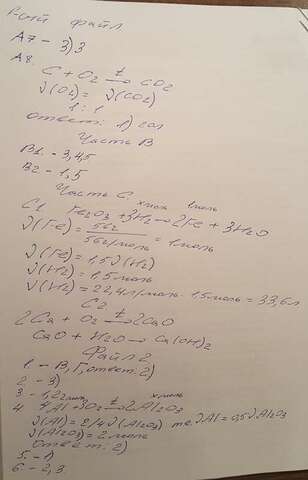 1-ый файл
A7 - 3) 3
A8.
C + O2 t→ CO2
ν(O2) = ν(CO2)
1 : 1
ответ: 1)
Часть В
B1. - 3,4,5
B2 - 1,5
Часть С.
x моль 1 моль
C1 Fe2O3 + 3H2 → 2Fe + 3H2O
ν(Fe) = 56г / 56г/моль = 1 моль
ν(Fe) = 1,5 ν(H2)
ν(H2) = 1,5 моль
V(H2) = 22,4 л/моль · 1,5 моль = 33,6 л
C2
2Ca + O2 t→ 2CaO
CaO + H2O → Ca(OH)2
Файл 2
1. - В, Г, ответ: 2)
2 - 3)
3 - 1,2
x моль
4 4Al + 3O2 t→ 2Al2O3
ν(Al) = 2/4 ν(Al2O3) те ν Al = 0,5 ν Al2O3
ν(Al2O3) = 2 моль
ответ: 2)
5 - 1)
6 - 2,3